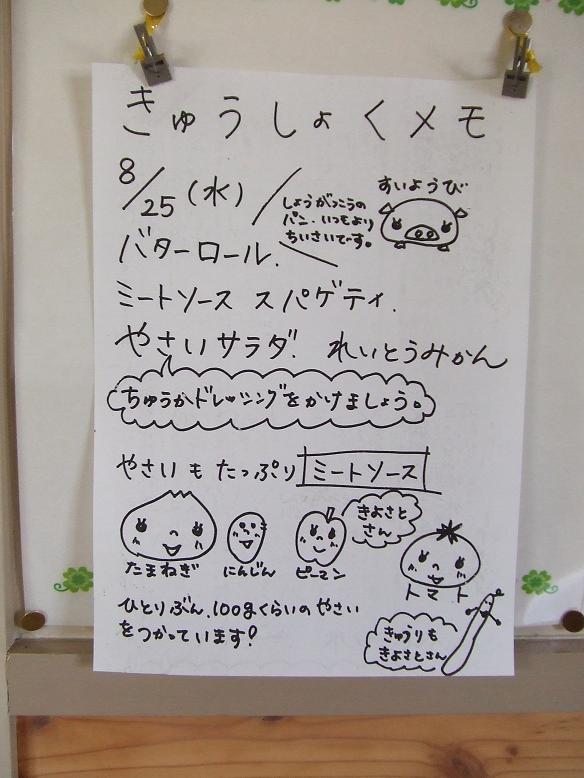 きゅうしょくメモ
8/25(水)
すいようび
しょうがっこうの
パン.いつもより
ちいさいです。
バターロール.
ミートソース スパゲティ.
やさいサラダ. れいとうみかん
ちゅうかドレッシングをかけましょう。
やさいも たっぷり ミートソース
きよさと
さん
たまねぎ にんじん ピーマン トマト
ひとりぶん.100gくらいのやさい
をつかっています!
きゅうりも
きよさとさん